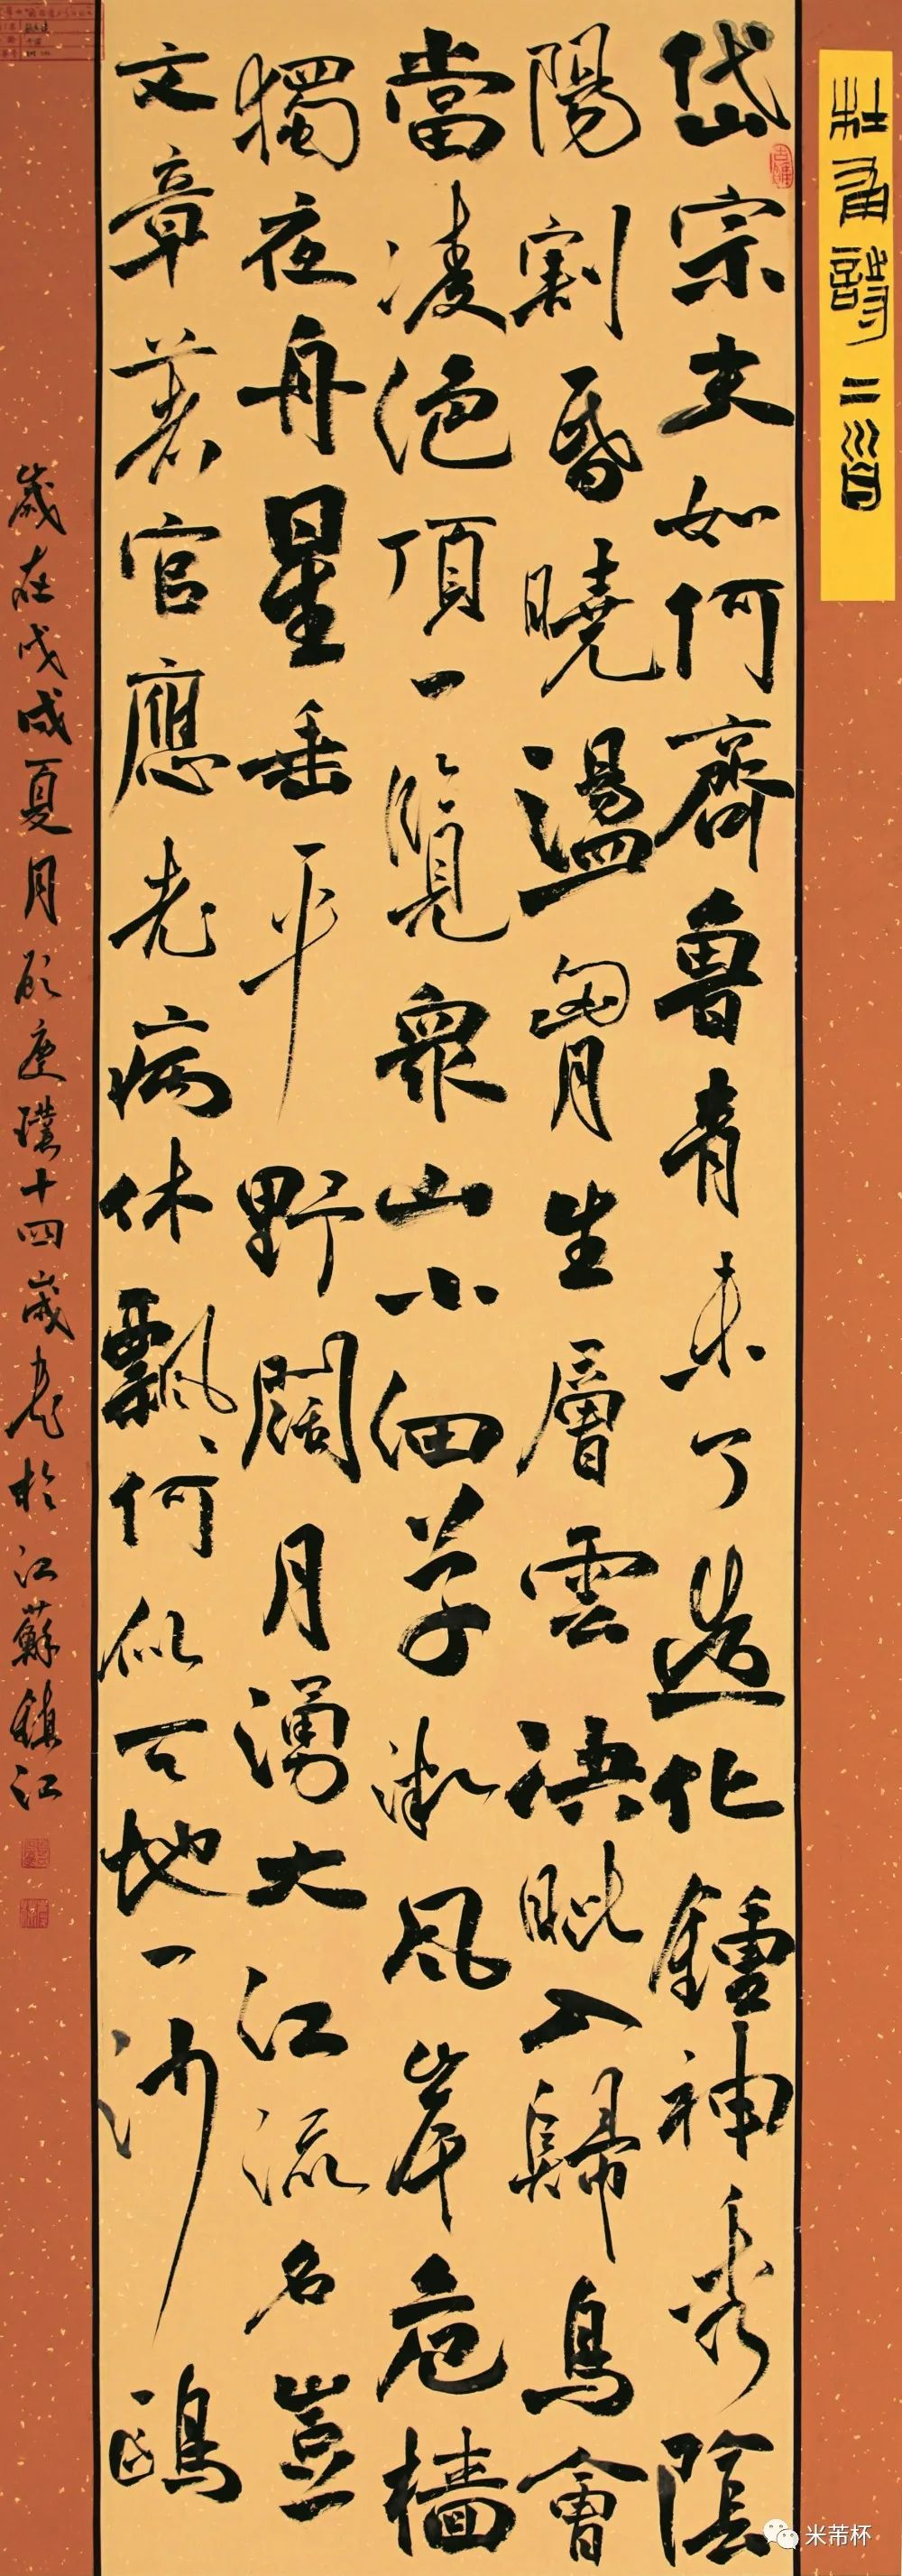 杜甫詩二首
岱宗夫如何齊魯青未了造化鍾神秀陰
陽割昏曉盪胷生層雲決眦入歸鳥會
當凌絕頂一覽衆山小細草微風岸危檣
獨夜舟星垂平野闊月湧大江流名豈
文章著官應老病休飄飄何似天地一沙鷗
歲在戊戌夏月
十四歲
於江蘇鎮江
米芾杯